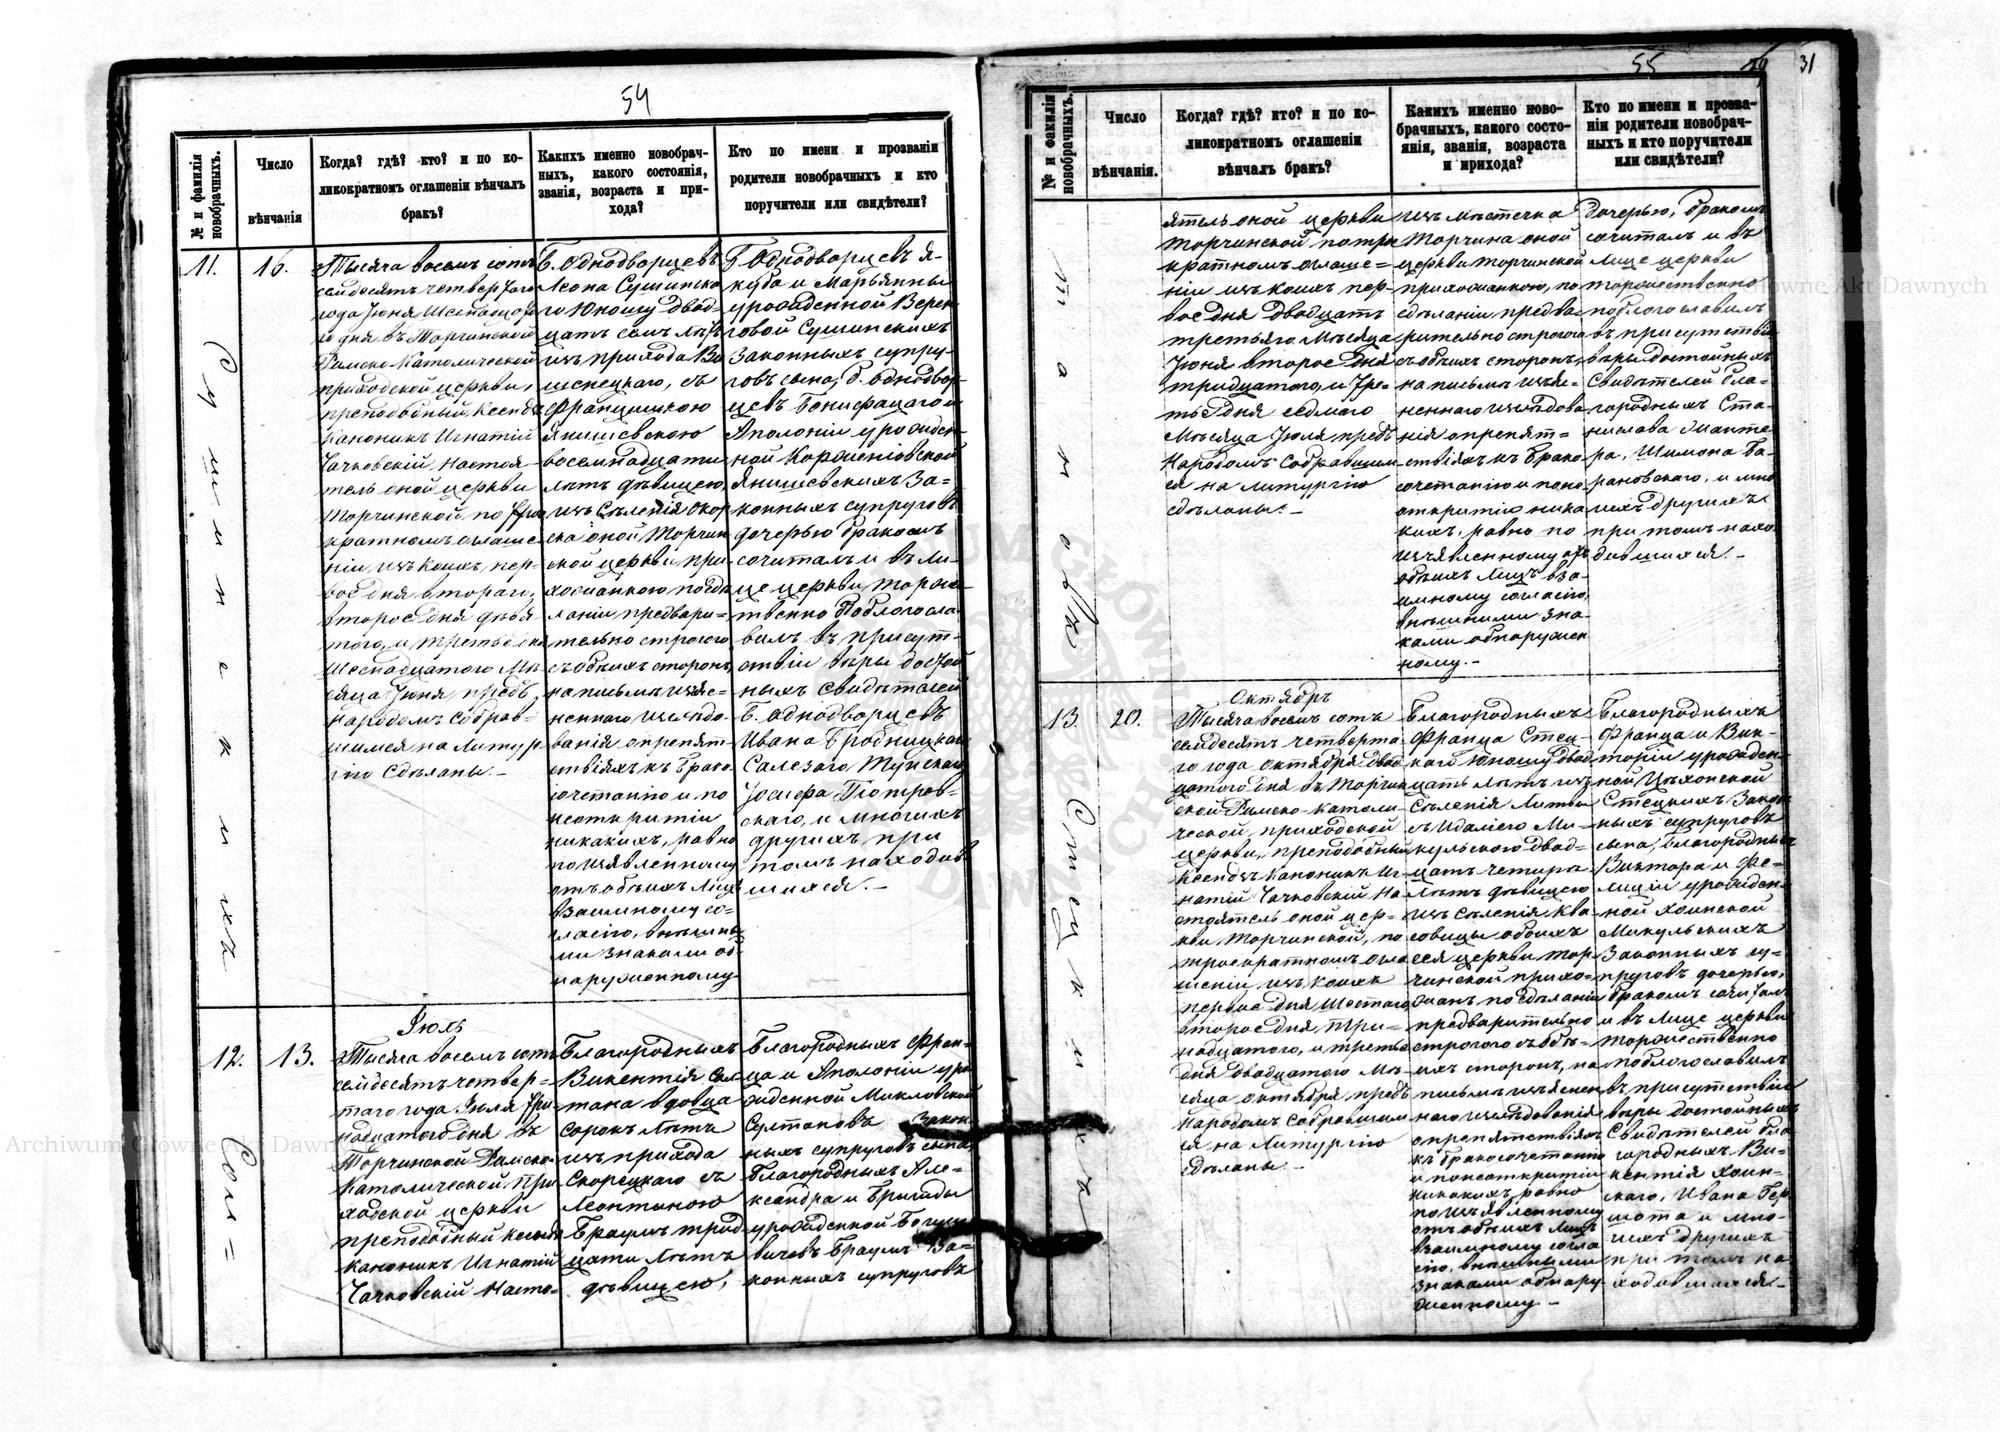 54
№ и фамилія новобрачныхъ.
Число вѣнчанія
Когда? гдѣ? кто? и по ко-
ликократномъ оглашеніи вѣнчалъ
бракъ?
Какихъ именно новобрач-
ныхъ, какого состоянія,
званія, возраста и при-
хода?
Кто по имени и прозваніи
родители новобрачныхъ и кто
поручители или свидѣтели?
11.
Сушинскихъ
16.
Тысяча восемь сотъ
семдесятъ четвертаго
года Іюня Шестнадцатаго
дня въ Торчинской
Римско-Католической
приходской церкви,
преподобный Ксендзъ
Каноникъ Игнатій
Чачковскій Настоя-
тель оной церкви
Торчинской по трие
кратномъ оглаше-
ніи изъ коихъ пер-
вое дня втораго,
второе дня девя-
таго, и третье дня
Шеснадцатаго Мѣ-
сяца Іюня предъ
народомъ собрав-
шимся на Литур
гію сдѣланы. -
Б. Однодворцевъ
Леона Сушинска
го Юношу двад-
цать семь лѣтъ
изъ прихода Ви
шенецкаго, съ
Францишкою
Янишевскою
восемнадцати
лѣтъ дѣвицею,
изъ Селенія
оной Торчин
ской церкви при
хожанкою по сдѣ
ланіи предвари-
тельно строгого
съ обѣихъ сторонъ
на письмѣ изъяс-
неннаго изслѣдо-
ванія о препят-
ствіяхъ къ Брако
сочетанію и по
неоткрытіи
никакихъ, равно
по изъявленному
отъ обѣихъ лицъ
взаимному со-
гласію, внѣшны
ми знаками об-
наруженному
Б. Однодворцевъ Я-
куба и Марьянны
урожденной Верен
говой Сушинскихъ
Законныхъ супру-
говъ сына, б. однодвор-
цевъ Бонифацаго и
Аполоніи урожден-
ной Корженіовской
Янишевскихъ За-
конныхъ супруговъ
дочерью бракомъ
сочиталъ и въ ли-
це церкви торже-
твенно Поблогосла
вилъ въ присут-
ствіи вѣры достой
ныхъ свидѣтелей
Б. однодворцевъ
Ивана Бродницкаго
Салезаго Жупскаго
Іосифа Піотров-
скаго, и многихъ
другихъ при
томъ находив
шихся. -
12.
Сол=
13.
Іюль
Тысяча восемь сотъ
семдесятъ четвер=
таго года Іюля три
надцатаго дня въ
Торчинской Римско-
Католической при
ходской церкви
преподобный ксендзъ
каноникъ Игнатій
Чачковскій Насто=
Благородныхъ
Викентія Сол
тана вдовца
сорокъ лѣтъ
изъ прихода
Скорецкаго съ
Леонтиною
Браумъ трид
цати лѣтъ
дѣвицею,
Благородныхъ Фран-
ца и Аполоніи уро
жденной Микловской
Султановъ закон-
ныхъ супруговъ сына,
Благородныхъ Але-
ксандра и Бригиды
урожденной Богуш
вичевъ Браумъ За-
конныхъ супруговъ
55
31
№ и фамилія новобрачныхъ.
Число вѣнчанія.
Когда? гдѣ? кто? и по ко-
ликократномъ оглашеніи
вѣнчалъ бракъ?
Какихъ именно ново-
брачныхъ, какого состо-
янія, званія, возраста
и прихода?
Кто по имени и прозва-
ніи родители новобрач-
ныхъ и кто поручители
или свидѣтели?
тановъ
ятель оной церкви
Торчинской по трие
кратномъ оглаше=
ніи изъ коихъ пер-
вое дня двадцать
третьяго Мѣсяца
Іюня второе дня
тридцатаго, и тре-
тье дня седмаго
Мѣсяца Іюля предъ
Народомъ собравшим
ся на литургію
сдѣланы. -
изъ мѣстечка
Торчина оной
церкви Торчинской
прихожанкою, по
сдѣланіи предва-
рительно строгого
съ обѣихъ сторонъ
на письмѣ изъяс-
неннаго изслѣдова
нія о препят=
ствіяхъ къ брако
сочетанію и по не
открытію ника
кихъ, равно по
изъявленному отъ
обѣихъ лицъ вза-
имному согласію,
внѣшними зна-
ками обнаружен
ному. -
дочерью, бракомъ
сочиталъ и въ
лице церкви
торжественно
поблогославилъ
въ присутствіи
вѣры достойныхъ
Свидѣтелей бла-
городныхъ Ста-
нислава
Шимона Ба-
рановскаго, и мно
гихъ другихъ
при томъ нахо
дившихся. -
13.
Стецкихъ
20.
Октябрь
Тысяча восемь сотъ
семдесятъ четверта
го года Октября двад
цатаго дня въ Торчин
ской Римско-католи-
ческой приходской
церкви, преподобный
Ксендзъ Каноникъ Иг-
натій Чачковскій На-
стоятель оной цер-
кви Торчинской, по
троекратномъ огла
шеніи изъ коихъ
первое дня шестаго
второе дня три=
надцатаго, и третье
дня двадцатаго Мѣ-
сяца октября предъ
Народомъ собравшим
ся на Литургію
сдѣланы -
Благородныхъ
Франца Стец-
каго Юношу двад
цать лѣтъ изъ
Селенія Литвы
съ Идаліею Ми-
кульскою двад-
цать четыре
лѣтъ дѣвицею
изъ селенія Ква
совицы обоихъ
сея церкви Тор
чинской прихо-
жанъ по сдѣланіи
предварительно
строгого съ обѣ-
ихъ сторонъ, на
письмѣ изъяснен
наго изслѣдованія
о препятствіяхъ
къ бракосочетанію
и по неоткрытіи
никакихъ, равно
по изъявленному
отъ обѣихъ лицъ
взаимному согла
сію, внѣшными
знаками обнару-
женному. -
Благородныхъ
Франца и Вик-
торіи урожден-
ной Цѣхонской
Стецкихъ Закон
ныхъ супруговъ
сына, благородныхъ
Виктора и Фе-
лиціи урожден-
ной Хоинской
Микульскихъ
Законныхъ су-
пруговъ дочерью,
бракомъ сочиталъ
и въ лице церкви
торжественно
поблогославилъ
въ присутствіи
вѣры достойныхъ
Свидѣтелей бла
городныхъ Ви-
кентія Хоин-
скаго, Ивана Гер
шота и мно-
гихъ другихъ
при томъ на
ходившихся -
Archiwum Główne Akt Dawnych